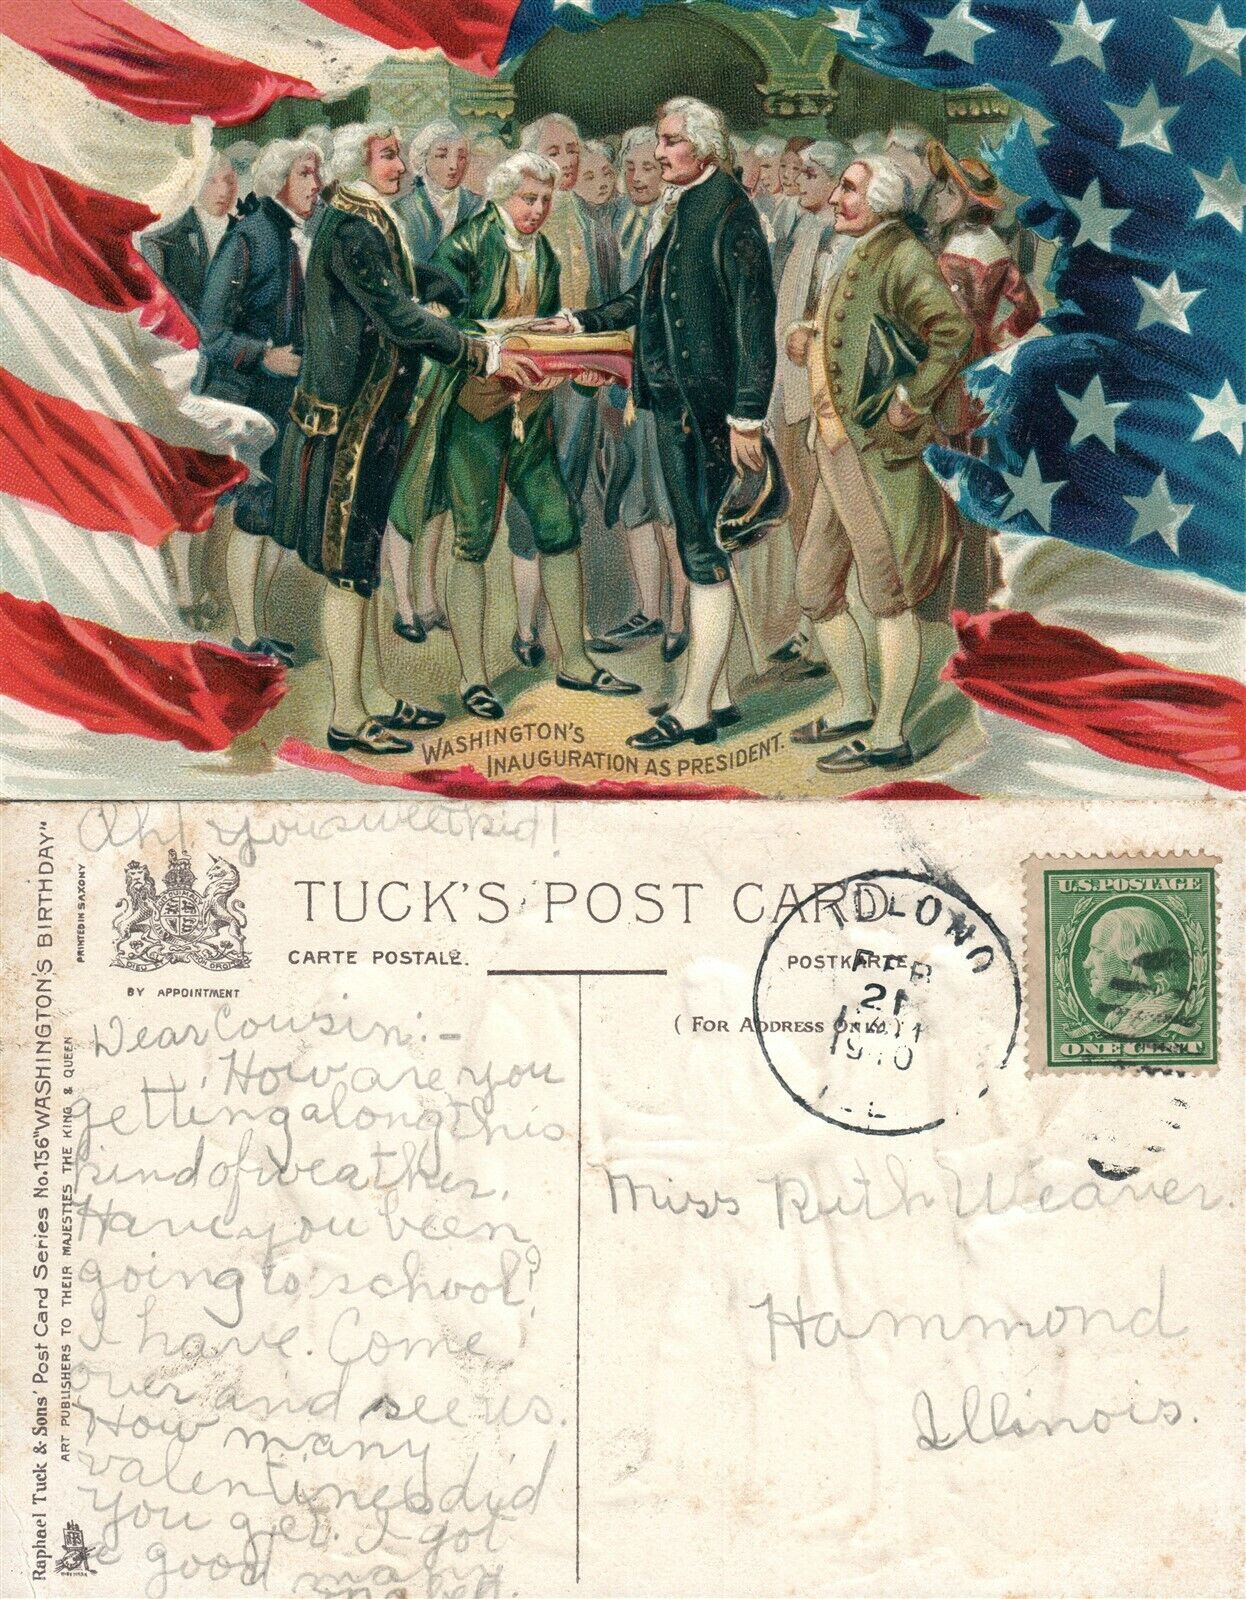 WASHINGTON'S
INAUGURATION AS PRESIDENT.
Raphael Tuck & Sons' Post Card Series No. 156 "WASHINGTON'S BIRTHDAY"
ART PUBLISHERS TO THEIR MAJESTIES THE KING & QUEEN
PRINTED IN SAXONY
Ah! you sweet kid!
DIEU ET MON DROIT
BY APPOINTMENT
TUCK'S POST CARD
CARTE POSTALE.
POSTKARTE
(FOR ADDRESS ONLY.)
TOLONO
FEB
21
1910
ILL
U.S. POSTAGE
ONE CENT
Dear Cousin:-
How are you
getting along this
kind of weather.
Have you been
going to school?
I have. Come
over and see us.
How many
valentines did
you get. I got
a good many
Miss Ruth Weaver.
Hammond
Illinois.